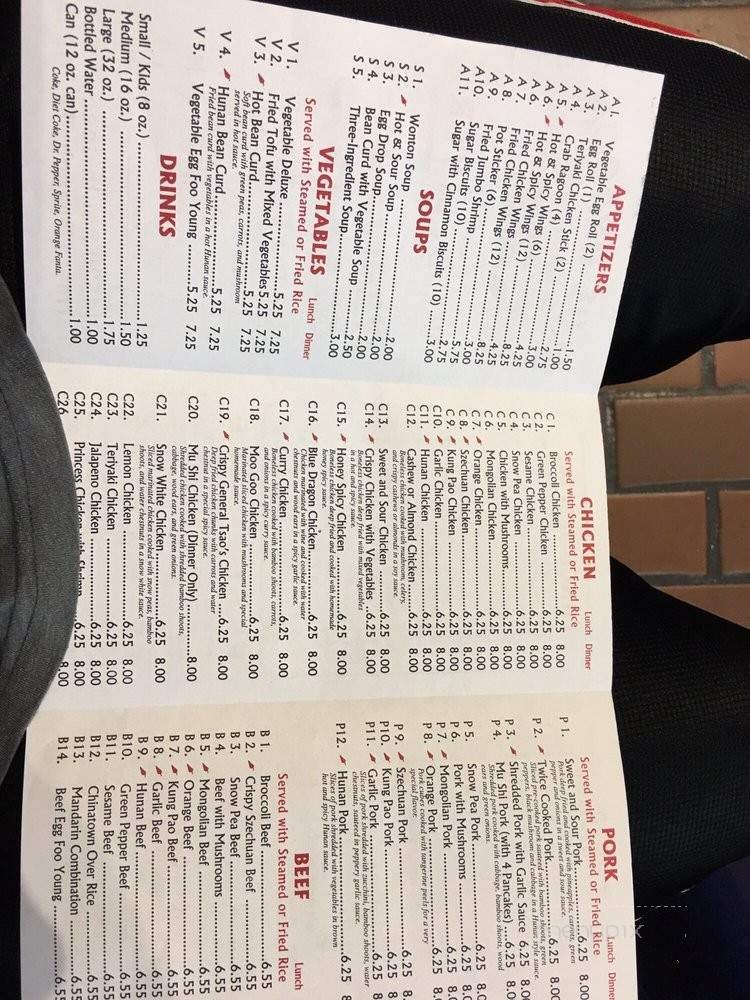 APPETIZERS
A 1. Vegetable Egg Roll (2) 1.50
A 2. Egg Roll (1) 1.00
A 3. Teriyaki Chicken Stick (2) 2.75
A 4. Crab Ragoon (4)
A 5. Hot & Spicy Wings (6) 3.00
A 6. Hot & Spicy Wings (12)
A 6. Fried Chicken Wings
A 7. Fried Chicken Wings (12)
A 8. Pot Sticker (6)
A 9. Fried Jumbo Shrimp
A10. Sugar Biscuits (10) 2.75
A11. Sugar with Cinnamon Biscuits (10) 3.00
SOUPS
S 1. Wonton Soup 2.00
S 2. Hot & Sour Soup 2.00
S 3. Egg Drop Soup 2.00
S 4. Bean Curd with Vegetable Soup 2.50
S 5. Three-Ingredient Soup 3.00
VEGETABLES
Served with Steamed or Fried Rice Lunch Dinner
V 1. Vegetable Deluxe 5.25 7.25
V 2. Fried Tofu with Mixed Vegetables 5.25 7.25
V 3. Hot Bean Curd 5.25 7.25
Soft bean curd with green peas, carrots, and mushroom
served in hot sauce.
V 4. Hunan Bean Curd 5.25 7.25
Fried bean curd with vegetables in a hot Hunan sauce.
V 5. Vegetable Egg Foo Young 5.25 7.25
DRINKS
Small / Kids (8 oz.) 1.25
Medium (16 oz.) 1.50
Large (32 oz.) 1.75
Bottled Water 1.00
Can (12 oz. can) 1.00
Coke, Diet Coke, Dr. Pepper, Sprite, Orange Fanta.
CHICKEN
Served with Steamed or Fried Rice Lunch Dinner
C 1. Broccoli Chicken 6.25 8.00
C 2. Green Pepper Chicken 6.25 8.00
C 3. Sesame Chicken 6.25 8.00
C 4. Snow Pea Chicken 6.25 8.00
C 5. Chicken with Mushrooms 6.25 8.00
C 6. Mongolian Chicken 6.25 8.00
C 7. Orange Chicken 6.25 8.00
C 8. Szechuan Chicken 6.25 8.00
C 9. Kung Pao Chicken 6.25 8.00
C10. Garlic Chicken 6.25 8.00
C11. Hunan Chicken 6.25 8.00
C12. Cashew or Almond Chicken 6.25 8.00
Boneless chicken cooked with mushroom, celery,
and crispy cashews or almonds in a soy sauce.
C13. Sweet and Sour Chicken 6.25 8.00
C14. Crispy Chicken with Vegetables 6.25 8.00
Boneless chicken deep fried with mixed vegetables
in a hot and spicy sauce.
C15. Honey Spicy Chicken 6.25 8.00
Boneless chicken deep fried and cooked with homemade
honey spicy sauce.
C16. Blue Dragon Chicken 6.25 8.00
Chicken marinated with wine and cooked with water
chestnuts and wood ears in a spicy garlic sauce.
C17. Curry Chicken 6.25 8.00
Boneless chicken cooked with bamboo shoots, carrots,
and onions in a spicy curry sauce.
C18. Moo Goo Chicken 6.25 8.00
Marinated sliced chicken with mushrooms and special
homemade sauce.
C19. Crispy General Tsao's Chicken 6.25 8.00
Deep fried chicken chunks with carrots and water
chestnut in a special spicy sauce.
C20. Mu Shi Chicken (Dinner Only) 8.00
Shredded chicken cooked with shredded bamboo shoots,
cabbage, wood ears, and green onions.
C21. Snow White Chicken 6.25 8.00
Sliced marinated chicken cooked with snow peas, bamboo
shoots, and water chestnuts in a snow white sauce.
C22. Lemon Chicken 6.25 8.00
C23. Teriyaki Chicken 6.25 8.00
C24. Jalapeno Chicken 6.25 8.00
C25. Princess Chicken with Shrimp 6.25 8.00
C26. 8.00
PORK
Served with Steamed or Fried Rice Lunch Dinner
P 1. Sweet and Sour Pork 6.25 8.00
Pork deep fried and cooked with pineapples, carrots, green
pepper and onions in a sweet and sour sauce.
P 2. Twice Cooked Pork 6.25 8.0
Sliced pre-cooked pork sauteed with bamboo shoots, green
peppers, black mushroom and cabbage in a Hunan style sauce.
P 3. Shredded Pork with Garlic Sauce 6.25 8.0
P 4. Mu Shi Pork (with 4 Pancakes) 6.25 8.0
Shredded pork cooked with cabbage, bamboo shoots, wood
ears and green onions.
P 5. Snow Pea Pork 6.25 8.
P 6. Pork with Mushrooms 6.25 8.
P 7. Mongolian Pork 6.25 8.
P 8. Orange Pork 6.25 8.
Pork cubes cooked with tangerine peels for a very
special flavor.
P 9. Szechuan Pork 6.25 8
P10. Kung Pao Pork 6.25 8
P11. Garlic Pork 6.25 8
Slices of pork shredded with zucchini, bamboo shoots, water
chestnut, sauteed in peppery garlic sauce.
P12. Hunan Pork 6.25 8
Slices of pork shredded with vegetables in brown
hot and spicy Hunan sauce.
BEEF
Served with Steamed or Fried Rice Lunch
B 1. Broccoli Beef 6.55
B 2. Crispy Szechuan Beef 6.55
B 3. Snow Pea Beef 6.55
B 4. Beef with Mushrooms 6.55
B 5. Mongolian Beef 6.55
B 6. Orange Beef 6.55
B 7. Kung Pao Beef 6.55
B 8. Garlic Beef 6.55
B 9. Hunan Beef 6.55
B10. Green Pepper Beef 6.55
B11. Sesame Beef 6.55
B12. Chinatown Over Rice 6.55
B13. Mandarin Combination 6.55
B14. Beef Egg Foo Young 6.55